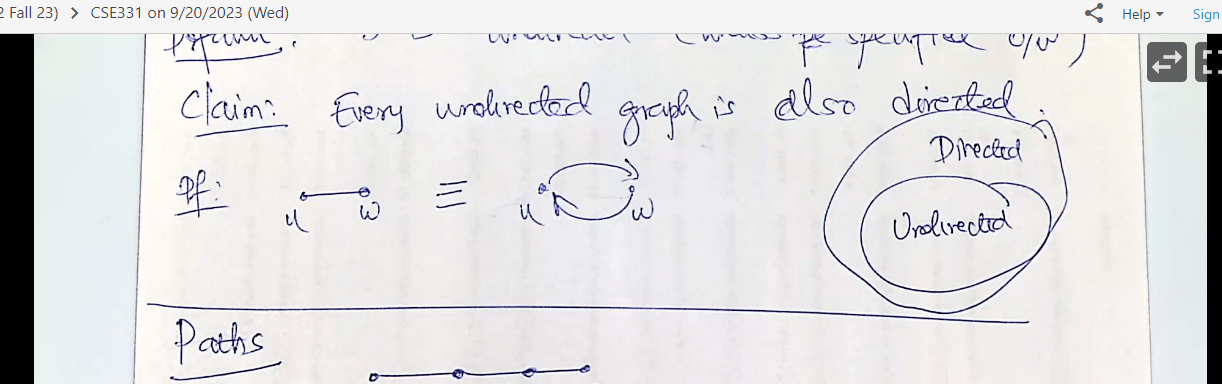 2 Fall 23) > CSE331 on 9/20/2023 (Wed)
Help
Sign
Claim: Every undirected graph is also directed.
Directed
Pf:
u w ≡ u w
Undirected
Paths